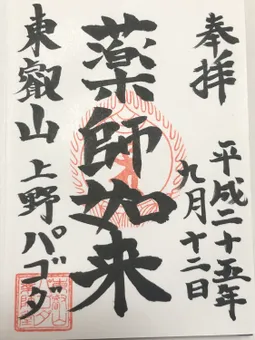 奉拝
平成二十五年
九月十二日
薬師如来
東叡山 上野パゴダ